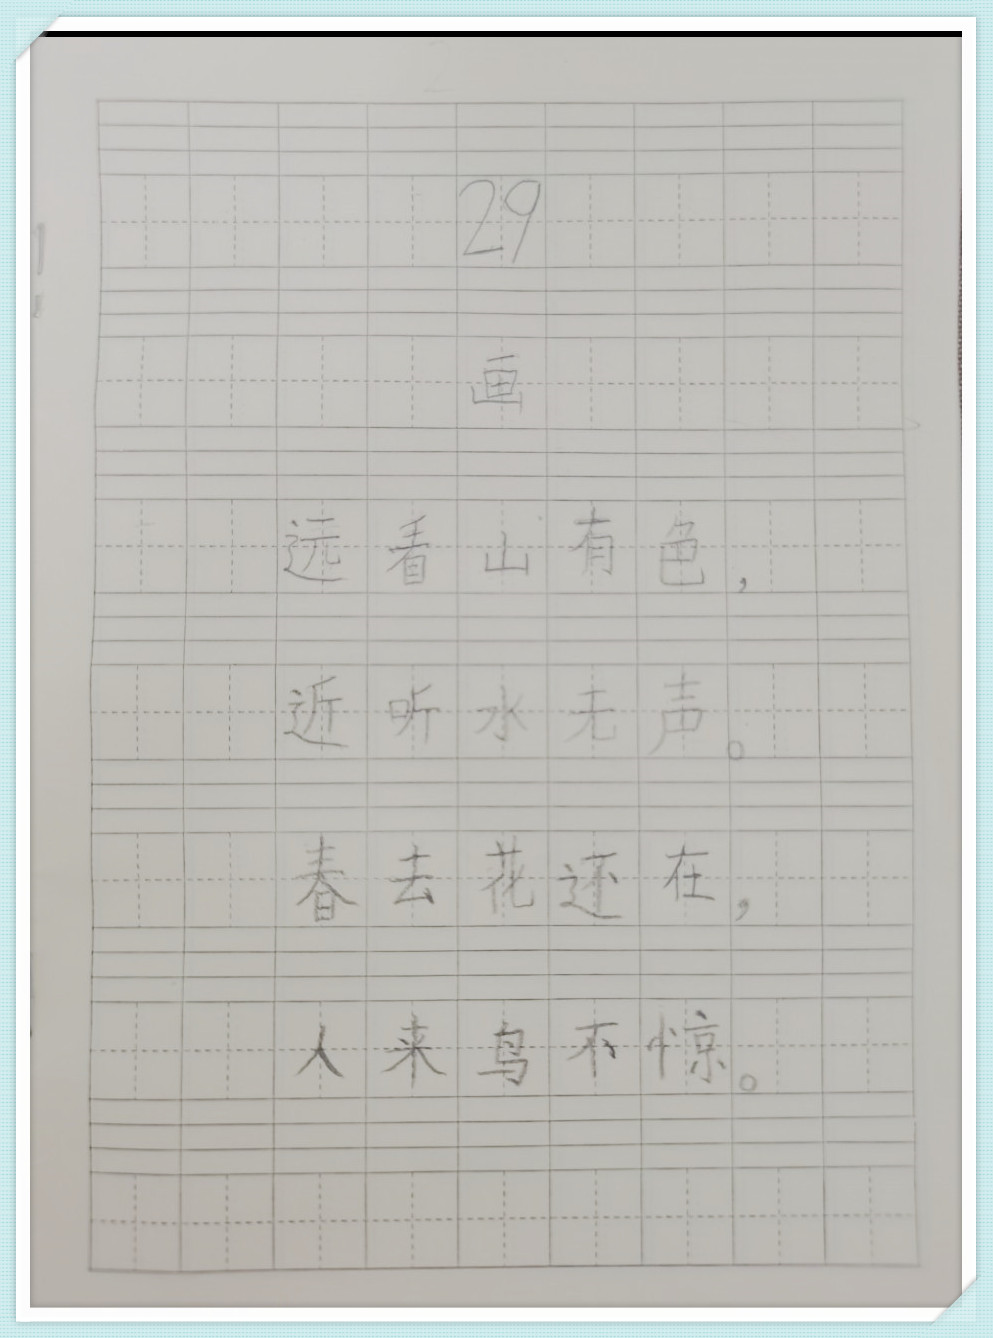 29
画
远看山有色，
近听水无声。
春去花还在，
人来鸟不惊。